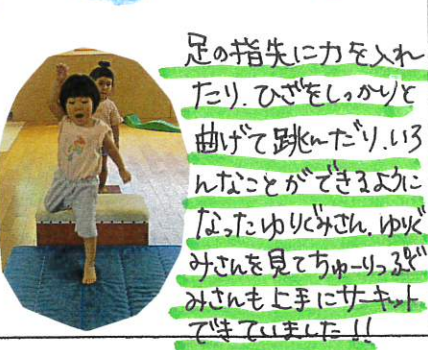 足の指先に力を入れ
たり、ひざをしっかりと
曲げて跳んだり、いろ
んなことができるように
なったゆりぐみさん。ゆりぐ
みさんを見てちゅーりっぷぐ
みさんも上手にサーキット
できていました!!